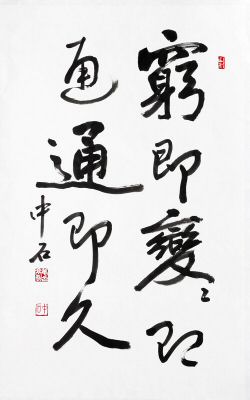 窮即變〻即
通通即久
中石